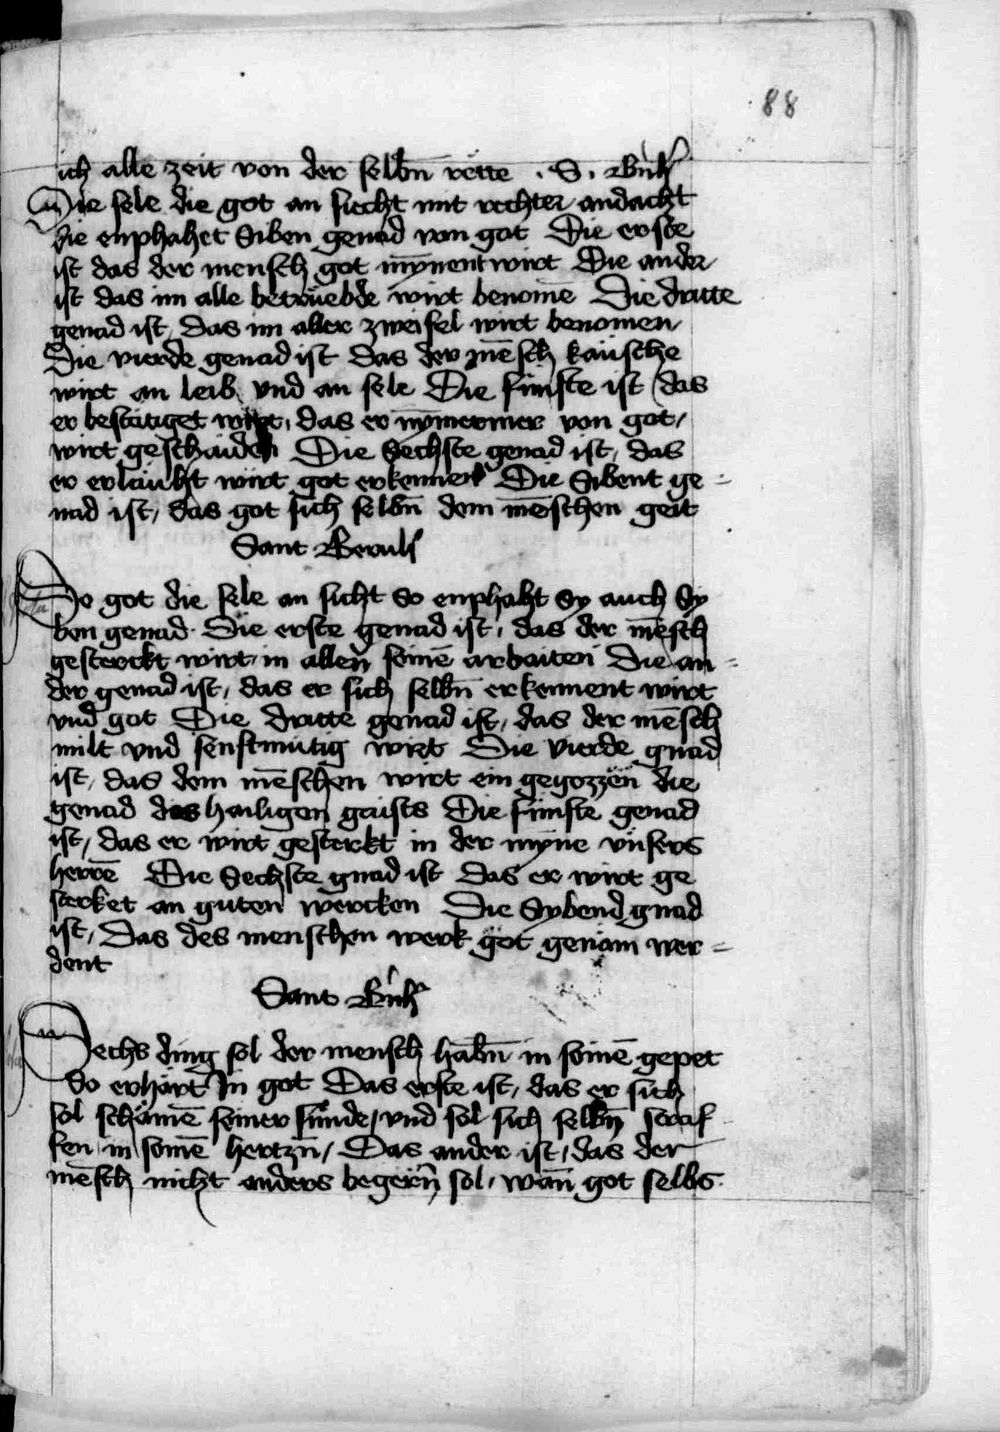 88
ich alle zeit von der selbn̄ rette . S .
Die sele die got an siecht mit rechter andacht
die enphahet Siben genad von got Die erste
ist das der mensch got mynnent wirt Die ander
ist das im alle betruebde wirt benomē Die dritte
genad ist, das im aller zweifel wirt benomen,
Die vierde genad ist das der mēsch käusche
wirt an leib vnd an sele Die fünfte ist das
er bestätiget wirt, das er nymermer von got,
wirt geschaiden Die Sechste genad ist, das
er erläucht wirt got erkennen Die Sibent ge=
nad ist, das got sich selbn̄ dem mēschen geit
Sant
So got die sele an sicht So enphaht Sy auch Sy
ben genad. Die erste genad ist, das der mēsch
gesterckt wirt in allen seinē arbaiten Die an=
der genad ist, das er sich selbn̄ erkennent wirt
vnd got Die dritte genad ist, das der mēsch
milt vnd senftmütig wirt Die vierde gnad
ist, das dem mēschen wirt ein gegozzen die
genad des heiligen gaists Die fünfte genad
ist, das er wirt gesterkt in der myne vnsers
herrē Die Sechste gnad ist das er wirt ge
sterket an guten wercken Die Sybend gnad
ist, Das des menschen werk got genäm wer=
dent
Sant
Sechs ding sol der mensch habn̄ in seinē gepet
So erhört In got Das erste ist, das er sich
sol schämē seiner sünde, vnd sol sich selbn̄ straf
fen in seinē hertzn̄, Das ander ist, das der
mēsch nicht anders begern̄ sol, wān got selbs.